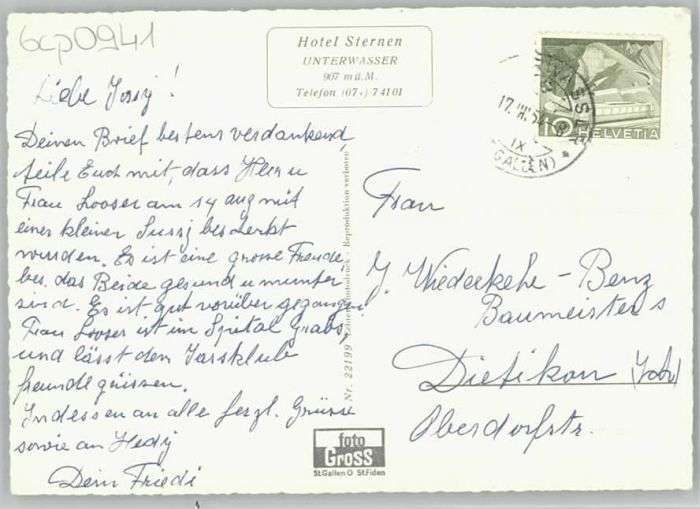 6cp0941
Hotel Sternen
UNTERWASSER
907 m ü. M.
Telefon (07 ) 7 41 01
HELVETIA
10
17. VIII. 5
IX
GALLEN)
Liebe Jossy!
Deinen Brief bestens verdankend
teile Euch mit, dass Herr u
Frau Looser am 14 aug mit
einer kleiner Sussy beschert
wurden. Es ist eine grosse Freude,
bes. das Beide gesund u munter
sind. Es ist gut vorüber gegangen
Frau Looser ist im Spital Grabs,
und lässt den Jassklub
freundl grüssen.
Indessen an alle herzl. Grüsse
sowie an Hedy
Dein Friedi
Nr. 22199 Reproduktion verboten
Frau
J. Wiederkehr-Benz
Baumeisters
Dietikon (Zch)
Oberdorfstr.
foto
Gross
St.Gallen O St.Fiden